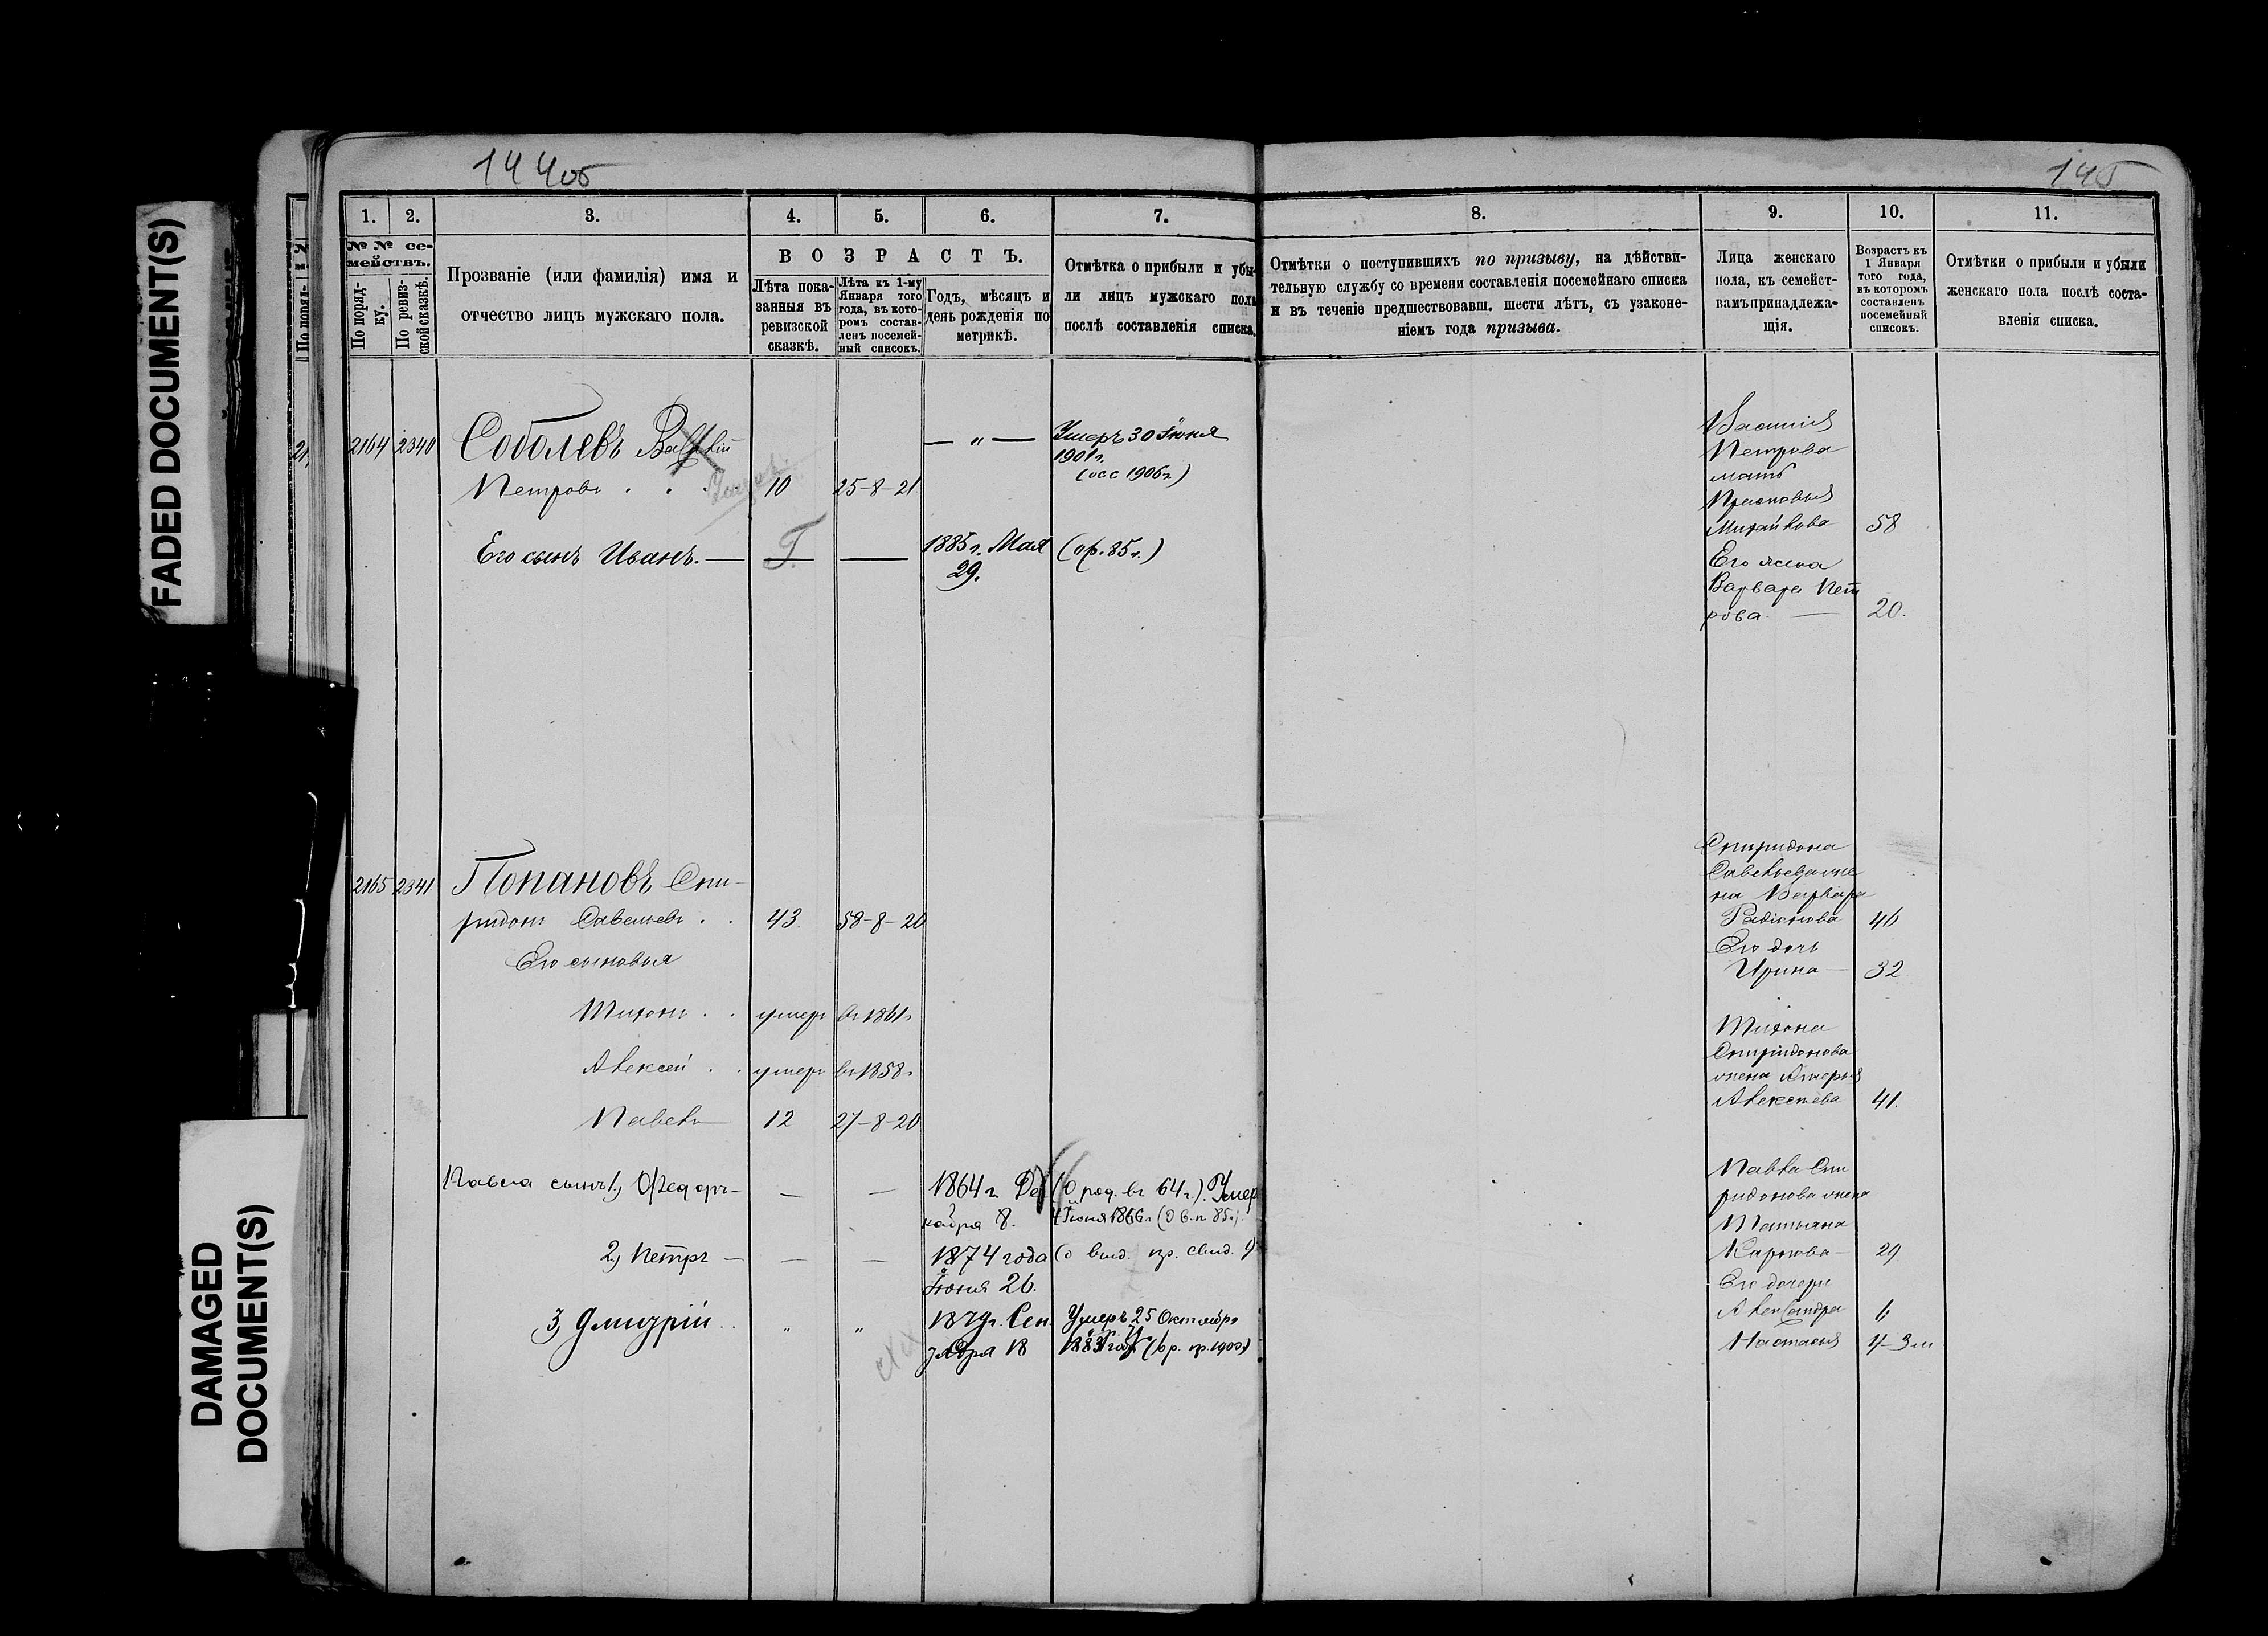 FADED DOCUMENT(S)
DAMAGED
DOCUMENT(S)
144об
145
1. 2. 3. 4. 5. 6. 7.
№ № се-
мействъ.
По поряд-
ку.
По ревиз-
ской сказкѣ.
Прозваніе (или фамилія) имя и
отчество лицъ мужскаго пола.
ВОЗРАСТЪ.
Лѣта пока-
занныя въ
ревизской
сказкѣ.
Лѣта къ 1-му
Января того
года, въ кото-
ромъ состав-
ленъ посемей-
ный списокъ.
Годъ, мѣсяцъ и
день рожденія по
метрикѣ.
Отмѣтка о прибыли и убы-
ли лицъ мужскаго пола
послѣ составленія списка.
8. 9. 10. 11.
Отмѣтки о поступившихъ по призыву, на дѣйстви-
тельную службу со времени составленія посемейнаго списка
и въ теченіе предшествовавш. шести лѣтъ, съ узаконе-
ніемъ года призыва.
Лица женскаго
пола, къ семейст-
вамъ принадлежа-
щія.
Возрастъ къ
1 Января
того года,
въ которомъ
составленъ
посемейный
списокъ.
Отмѣтки о прибыли и убыли
женскаго пола послѣ соста-
вленія списка.
2164 2340 Соболевъ — „ — Умеръ 30 Іюня
1901г.
Петровъ . . . 10 25-8-21 (осс 1906г.)
Его сынъ Иванъ. — — — 1885г. Мая (ор. 85г.)
29.
Василія
Петрова
мать
Прасковья
Михайлова 58
Его жена
Варвара Пет
рова — 20.
2165 2341 Попановъ Спи-
ридонъ Савельевъ . . 43. 58-8-20
Его сыновья
Тихонъ . . умеръ въ 1861г
Алексей . . умеръ въ 1858г
Павелъ — 12 27-8-20
Павла сынъ 1, Ѳедоръ — — — 1864г. Де (О род. въ 64г.). Умер
кабря 8. 4 Іюня 1866г (О в.п. 85г.).
2, Петръ — — — 1874 года (о выд. пр. свид.
Іюня 26.
3, Дмитрій . . „ „ Сен Умеръ 25 Октября
тября 18 (в р. пр. 1900)
Спиридона
Савельева же
на Варвара
Радіонова 46
Его дочь
Ирина — 32
Тихона
Спиридонова
жена
Алексеева 41.
Павла Спи
ридонова жена
Татьяна
Карпова — 29
Его дочери
Александра 6
Настасья 4-3 м.